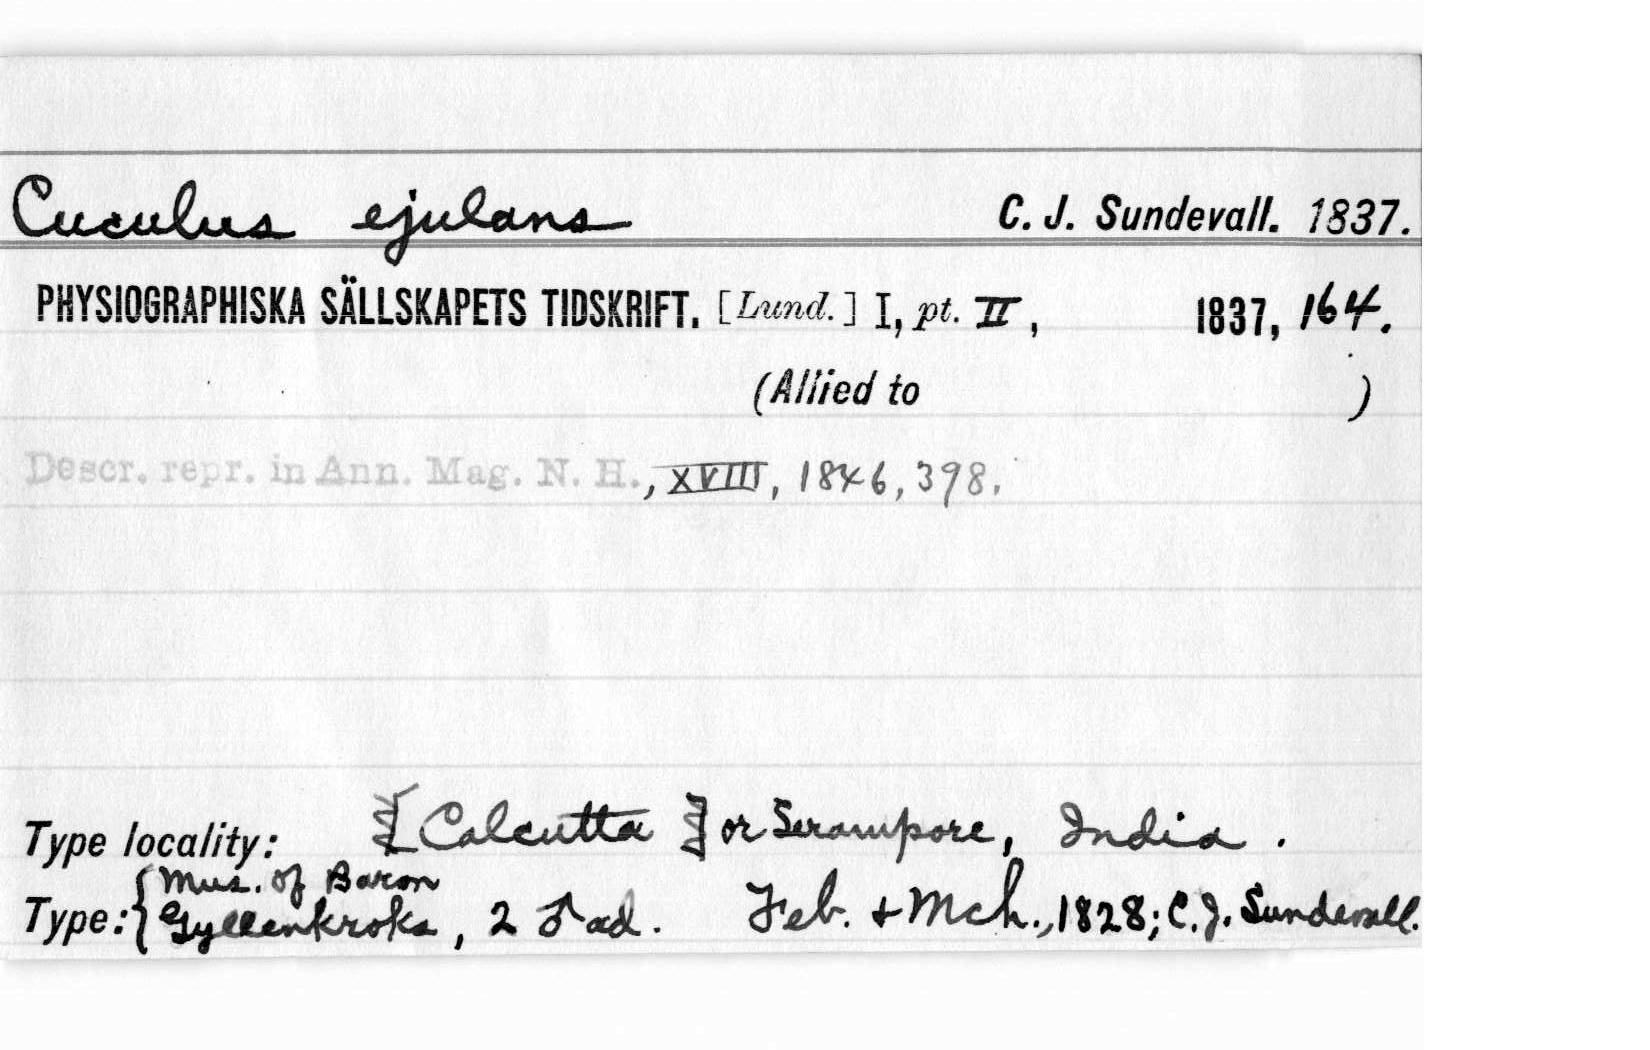 Cuculus ejulans C. J. Sundevall. 1837.
PHYSIOGRAPHISKA SÄLLSKAPETS TIDSKRIFT. [Lund.] I, pt. II, 1837, 164.
(Allied to )
Descr. repr. in Ann. Mag. N. H., XVIII, 1846, 398.
Type locality: [Calcutta] or Serampore, India.
Mus. of Baron
Type: { Gyllenkroks, 2 ♂ ad. Feb. + Mch., 1828; C. J. Sundevall.